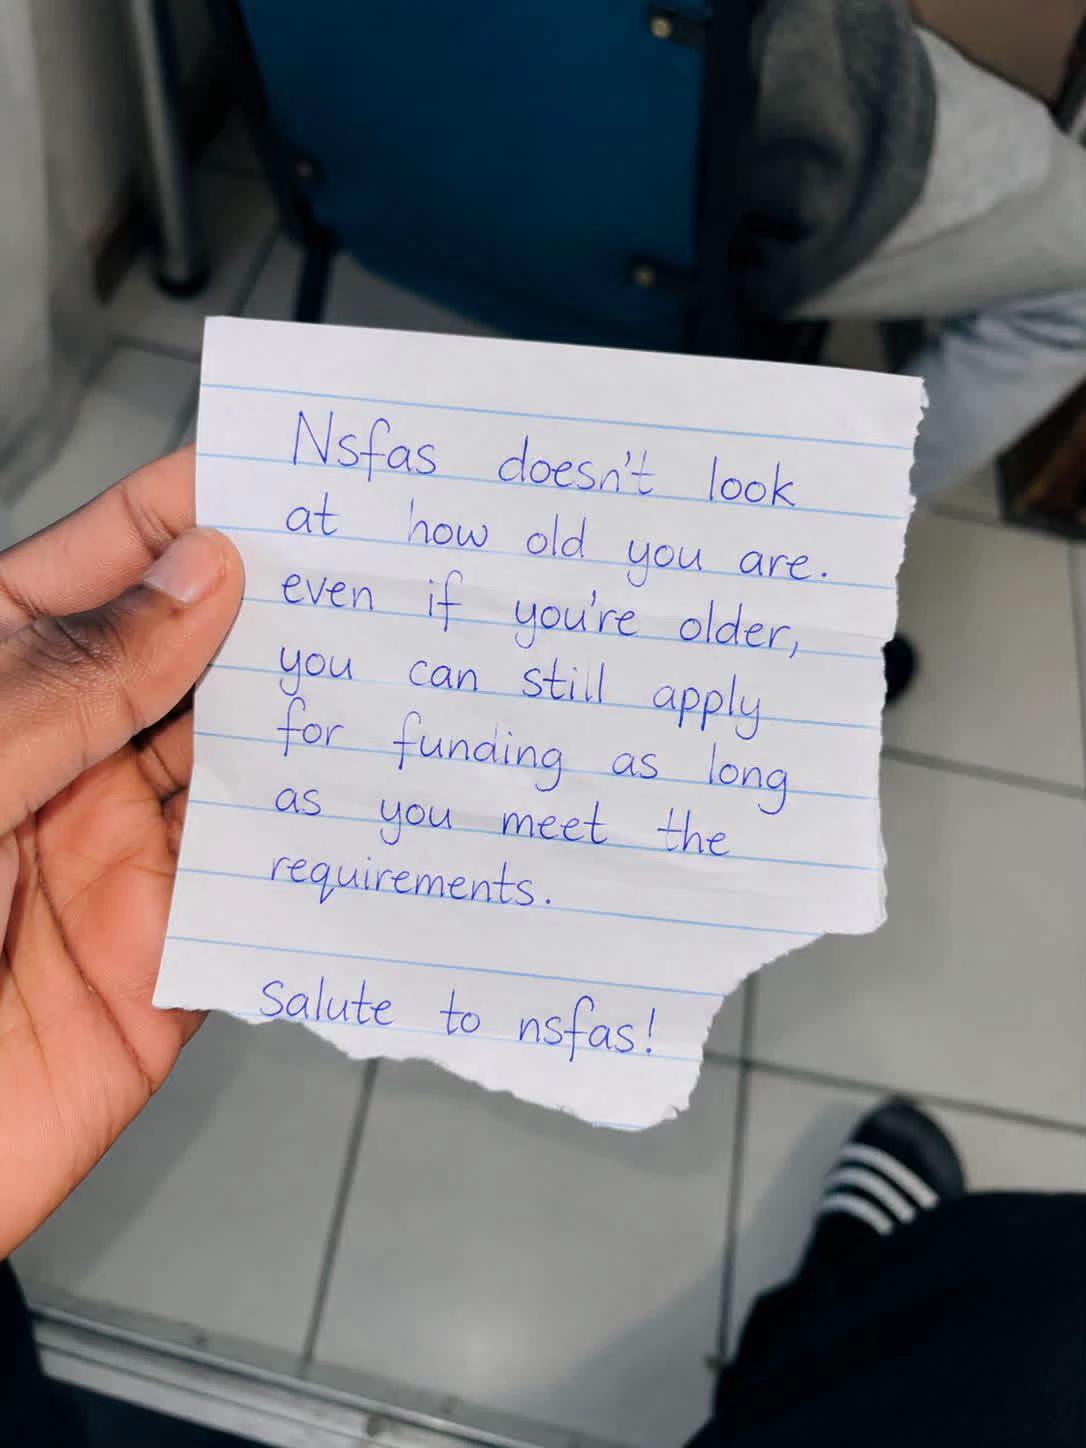 Nsfas doesn't look
at how old you are.
even if you're older,
you can still apply
for funding as long
as you meet the
requirements.
Salute to nsfas!